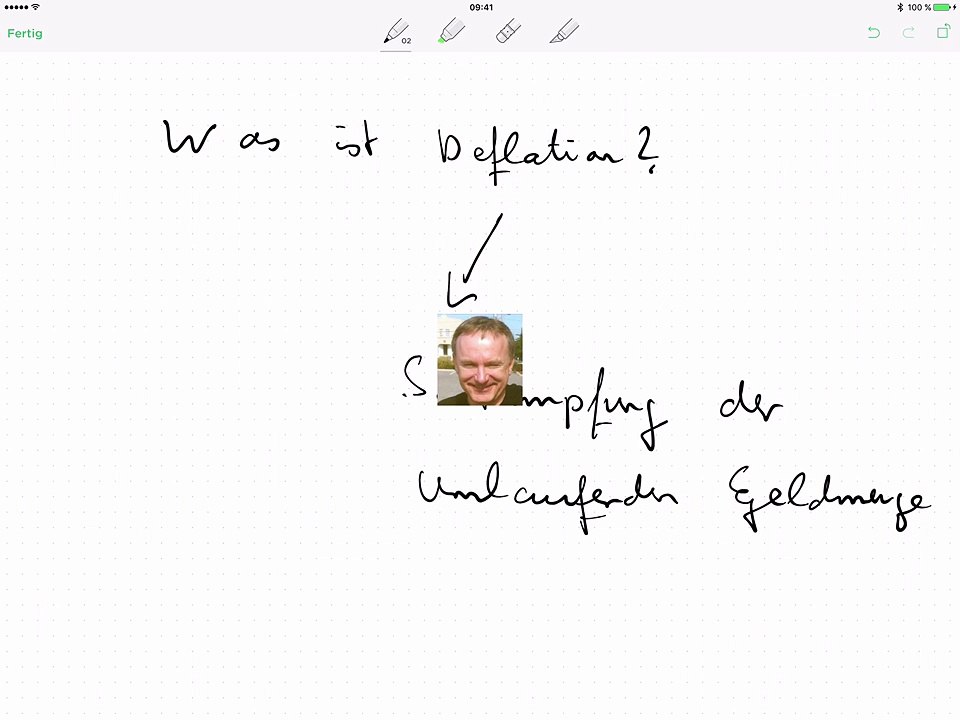 09:41 100 %
Fertig
02
Was ist Deflation?
der
umlaufenden Geldmenge